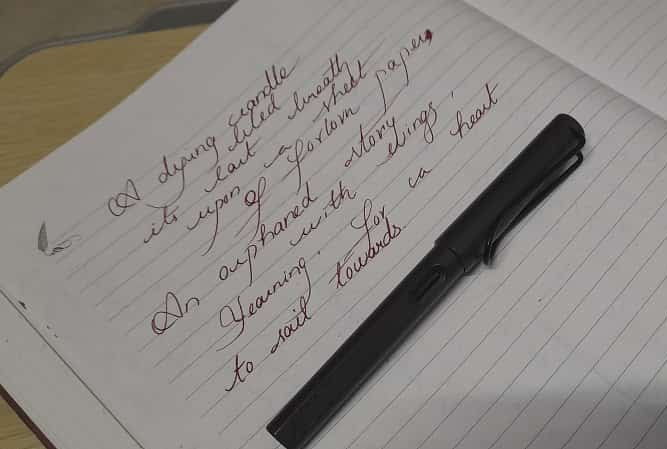 A dying candle bled
its last breath
upon a sheet
of forlorn paper,
An orphaned story
with wings,
Yearning, for a heart
to sail towards.